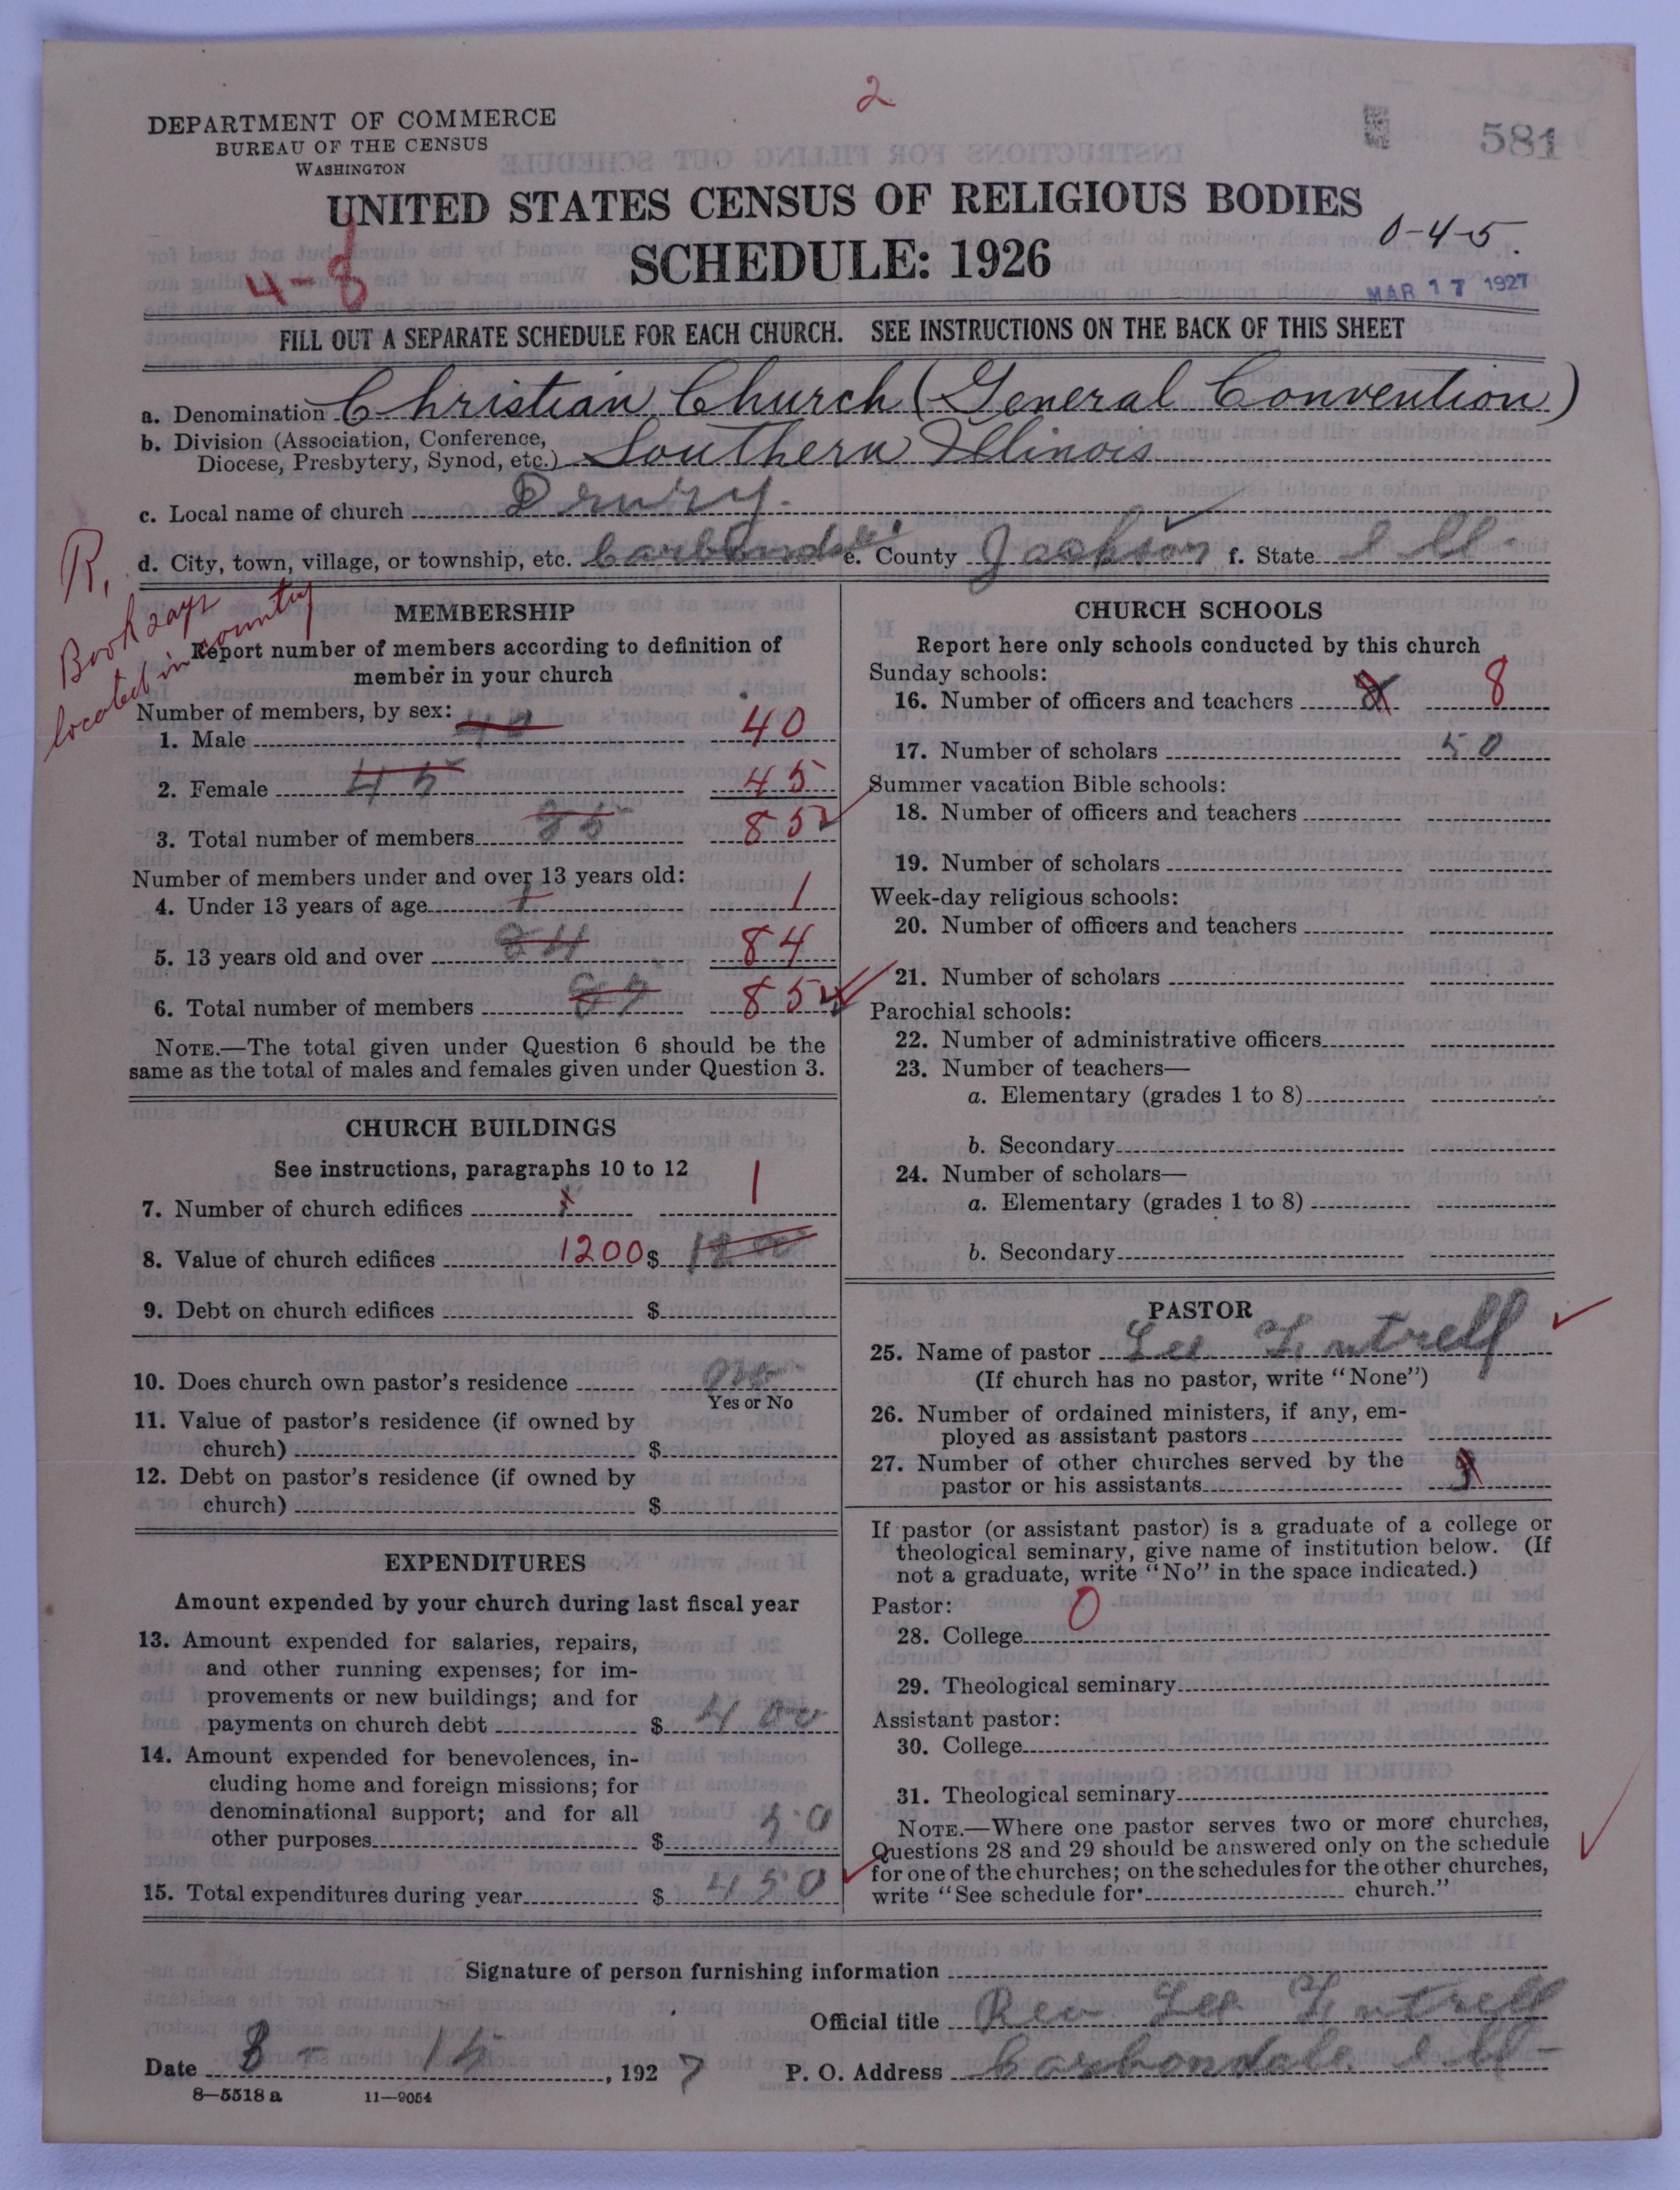 2
DEPARTMENT OF COMMERCE
BUREAU OF THE CENSUS
WASHINGTON
581
UNITED STATES CENSUS OF RELIGIOUS BODIES
SCHEDULE: 1926
0-4-5.
4-8
MAR 17 1927
FILL OUT A SEPARATE SCHEDULE FOR EACH CHURCH. SEE INSTRUCTIONS ON THE BACK OF THIS SHEET
a. Denomination Christian Church (General Convention)
b. Division (Association, Conference,
Diocese, Presbytery, Synod, etc.) Southern Illinois
c. Local name of church Drury.
d. City, town, village, or township, etc. Carbondale e. County Jackson f. State Ill.
R,
Book says
located in country
MEMBERSHIP
Report number of members according to definition of
member in your church
Number of members, by sex:
1. Male 40 40
2. Female 45 45
3. Total number of members 85 85
Number of members under and over 13 years old:
4. Under 13 years of age 1 1
5. 13 years old and over 84 84
6. Total number of members 85
NOTE.—The total given under Question 6 should be the
same as the total of males and females given under Question 3.
CHURCH BUILDINGS
See instructions, paragraphs 10 to 12
7. Number of church edifices 1 1
8. Value of church edifices 1200 $ 1200
9. Debt on church edifices $
10. Does church own pastor's residence no
Yes or No
11. Value of pastor's residence (if owned by
church) $
12. Debt on pastor's residence (if owned by
church) $
EXPENDITURES
Amount expended by your church during last fiscal year
13. Amount expended for salaries, repairs,
and other running expenses; for im-
provements or new buildings; and for
payments on church debt $ 400
14. Amount expended for benevolences, in-
cluding home and foreign missions; for
denominational support; and for all
other purposes $ 50
15. Total expenditures during year $ 450
CHURCH SCHOOLS
Report here only schools conducted by this church
Sunday schools:
16. Number of officers and teachers 8 8
17. Number of scholars 50
Summer vacation Bible schools:
18. Number of officers and teachers
19. Number of scholars
Week-day religious schools:
20. Number of officers and teachers
21. Number of scholars
Parochial schools:
22. Number of administrative officers
23. Number of teachers—
a. Elementary (grades 1 to 8)
b. Secondary
24. Number of scholars—
a. Elementary (grades 1 to 8)
b. Secondary
PASTOR
25. Name of pastor Lee
(If church has no pastor, write "None")
26. Number of ordained ministers, if any, em-
ployed as assistant pastors
27. Number of other churches served by the
pastor or his assistants
If pastor (or assistant pastor) is a graduate of a college or
theological seminary, give name of institution below. (If
not a graduate, write "No" in the space indicated.)
Pastor: 0
28. College
29. Theological seminary
Assistant pastor:
30. College
31. Theological seminary
NOTE.—Where one pastor serves two or more churches,
Questions 28 and 29 should be answered only on the schedule
for one of the churches; on the schedules for the other churches,
write "See schedule for church."
Signature of person furnishing information
Official title Rev Lee
Date 3 - 15, 1927 P. O. Address Carbondale Ill-
8—5518 a 11—9054